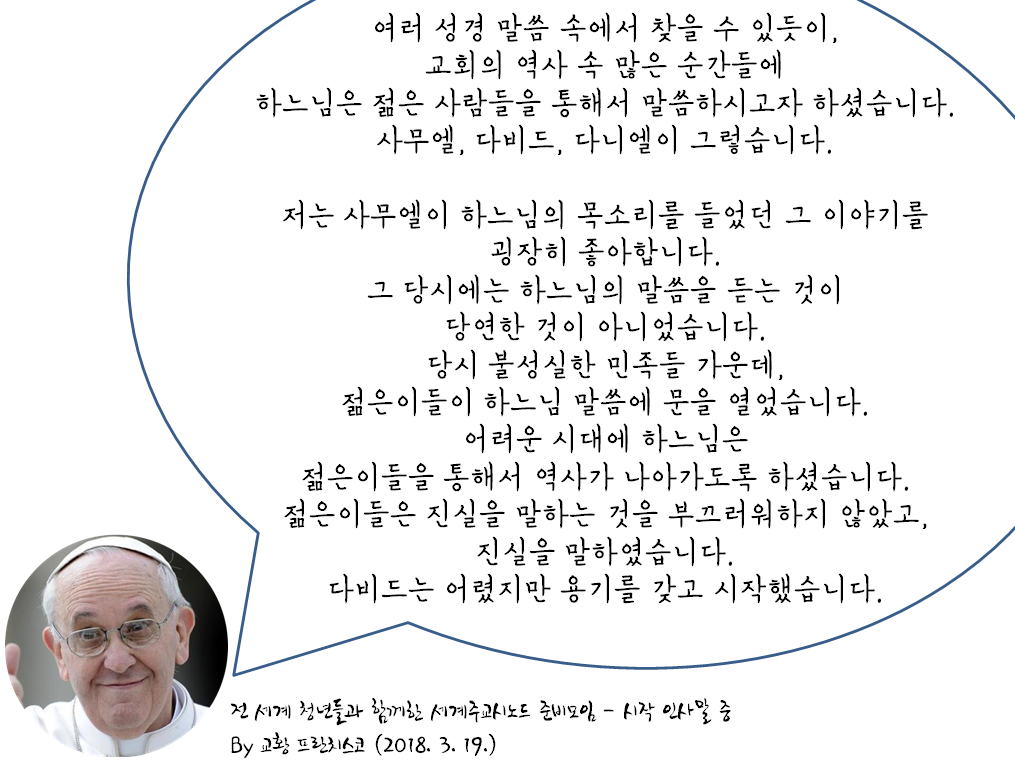 여러 성경 말씀 속에서 찾을 수 있듯이,
교회의 역사 속 많은 순간들에
하느님은 젊은 사람들을 통해서 말씀하시고자 하셨습니다.
사무엘, 다비드, 다니엘이 그렇습니다.
저는 사무엘이 하느님의 목소리를 들었던 그 이야기를
굉장히 좋아합니다.
그 당시에는 하느님의 말씀을 듣는 것이
당연한 것이 아니었습니다.
당시 불성실한 민족들 가운데,
젊은이들이 하느님 말씀에 문을 열었습니다.
어려운 시대에 하느님은
젊은이들을 통해서 역사가 나아가도록 하셨습니다.
젊은이들은 진실을 말하는 것을 부끄러워하지 않았고,
진실을 말하였습니다.
다비드는 어렸지만 용기를 갖고 시작했습니다.
전 세계 청년들과 함께한 세계주교시노드 준비모임 - 시작 인사말 중
By 교황 프란치스코 (2018. 3. 19.)